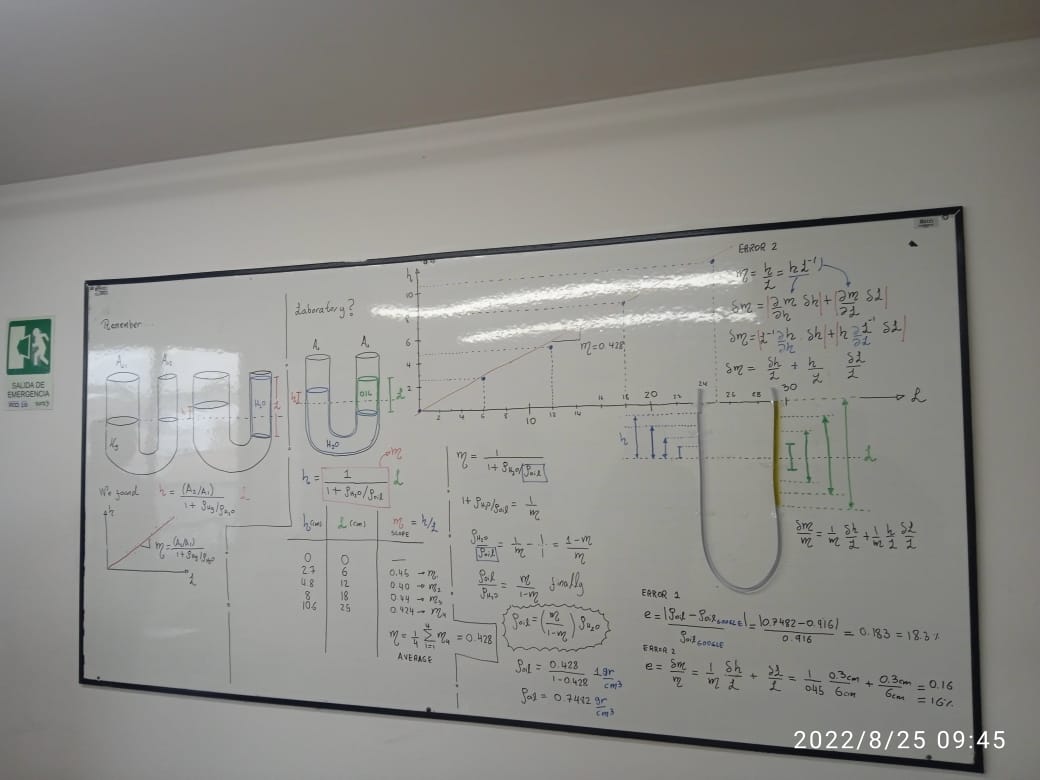 SALIDA DE
EMERGENCIA
Remember...
A₁
A₂
h
H₂O
L
Hg
We found h = (A₂/A₁) / (1 + ρHg/ρH₂O) L
h
m = (A₂/A₁) / (1 + ρHg/ρH₂O)
L
Laboratory?
A₁
A₂
h
OIL
L
H₂O
m
h = 1 / (1 + ρH₂O/ρoil) L
h(cm) L (cm) m = h/L
SLOPE
0 0 —
2.7 6 0.45 → m₁
4.8 12 0.40 → m₂
8 18 0.44 → m₃
10.6 25 0.424 → m₄
m = 1/4 Σ i=1 4 m = 0.428
AVERAGE
h
10
8
6
4
2
m = 0.428
2 4 6 8 10 12 14 16 18 20 22 24 26 28 30 L
m = 1 / (1 + ρH₂O/ρoil)
1 + ρH₂O/ρoil = 1/m
ρH₂O/ρoil = 1/m - 1/1 = (1-m)/m
ρoil/ρH₂O = m/(1-m) finally
ρoil = (m/(1-m)) ρH₂O
ρoil = 0.428/(1-0.428) 1 gr/cm³
ρoil = 0.7482 gr/cm³
ERROR 2
m = h/L = h L⁻¹
δm = |∂m/∂h δh| + |∂m/∂L δL|
δm = |L⁻¹ ∂h/∂h δh| + |h ∂L⁻¹/∂L δL|
δm = δh/L + h/L δL/L
h
L
δm/m = 1/m δh/L + 1/m h/L δL/L
ERROR 1
e = |ρoil - ρoil GOOGLE| / ρoil GOOGLE = |0.7482 - 0.916| / 0.916 = 0.183 = 18.3%
ERROR 2
e = δm/m = 1/m δh/L + δL/L = 1/0.45 0.3cm/6cm + 0.3cm/6cm = 0.16
= 16%
2022/8/25 09:45